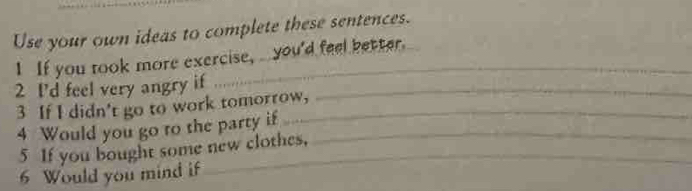 Use your own ideas to complete these sentences.
1 If you took more exercise, you'd feel better.
2 I'd feel very angry if
3 If I didn't go to work tomorrow,
4 Would you go to the party if
5 If you bought some new clothes,
6 Would you mind if